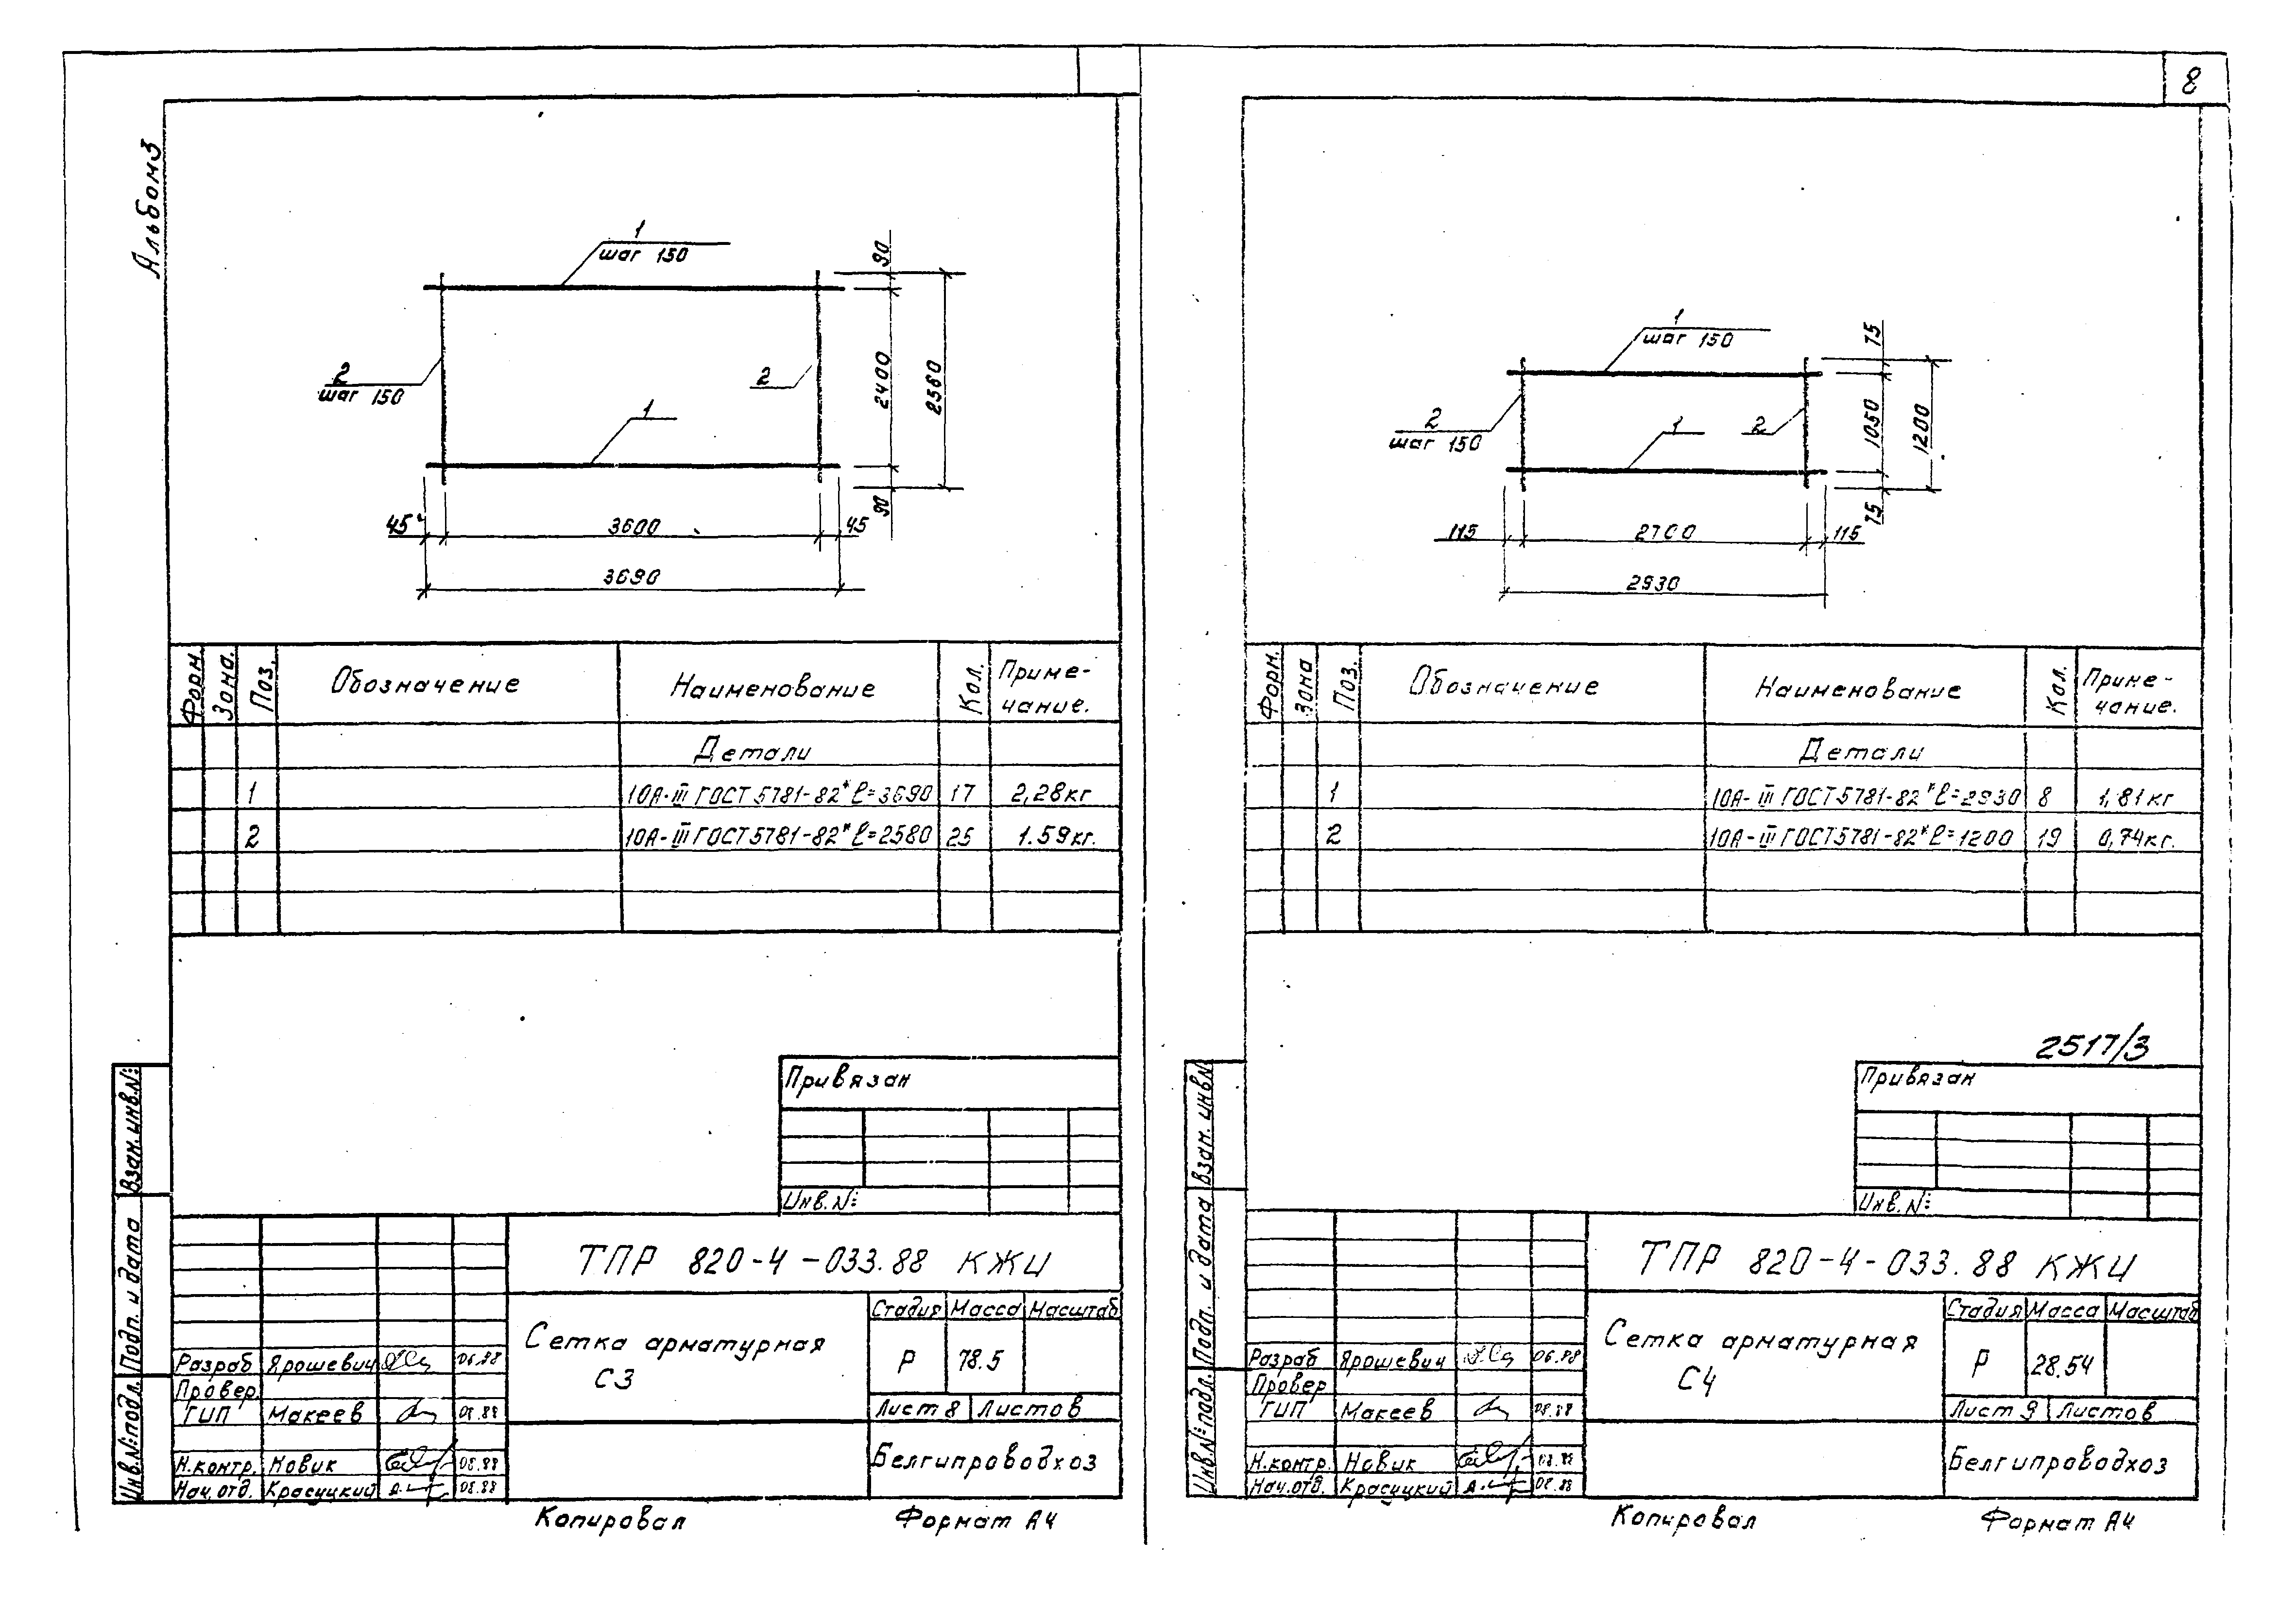 8
Альбом 3
1
шаг 150
2
шаг 150
2
1
90
2400
2580
90
45
3600
45
3690
Форм.
Зона.
Поз.
Обозначение
Наименование
Кол.
Приме-
чание.
Детали
1 10А-III ГОСТ 5781-82* ℓ=3690 17 2,28кг
2 10А-III ГОСТ 5781-82* ℓ=2580 25 1.59кг.
Привязан
Инв.№:
Взам. инв.№:
Подп. и дата
Инв.№:подл.
ТПР 820-4-033.88 КЖИ
Сетка арматурная
С3
Стадия Масса Масштаб
Р 78.5
Лист 8 Листов
Белгипроводхоз
Разраб Ярошевич 06.88
Провер.
ГИП Макеев 08.88
Н.контр. Новик 08.88
Нач.отд. Красуцкий 08.88
Копировал Формат А4
1
шаг 150
2
шаг 150
1
2
75
1050
1200
75
115
2700
115
2930
Форм.
Зона
Поз.
Обозначение
Наименование
Кол.
Приме-
чание.
Детали
1 10А-III ГОСТ 5781-82* ℓ=2930 8 1,81кг
2 10А-III ГОСТ 5781-82* ℓ=1200 19 0,74кг.
2517/3
Привязан
Инв.№:
Взам. инв.№
Подп. и дата
Инв.№:подл.
ТПР 820-4-033.88 КЖИ
Сетка арматурная
С4
Стадия Масса Масштаб
Р 28.54
Лист 9 Листов
Белгипроводхоз
Разраб Ярошевич 06.88
Провер
ГИП Макеев 08.88
Н.контр. Новик 08.88
Нач.отд. Красуцкий 08.88
Копировал Формат А4